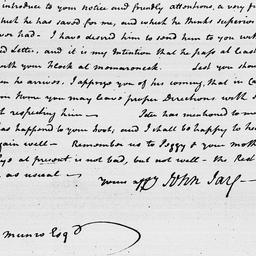 introduce to your notice and friendly attentions, a very f
he has saved for me, and which he thinks superior
ever had - I have desired him to send him to you wit
Letter, and it is my Intention that he pass at Least
with your Flock at mamaroneck. Lest you sho
he arrives, I apprize you of his coming, that in Ca
from Home you may leave proper Directions with
respecting him - Peter has mentioned to me
has happened to your boat, and I shall be happy to hea
again well - Remember us to Peggy & your moth
at present is not bad, but not well - the Rest
as usual - yours affy John Jay -
Munro Esqr